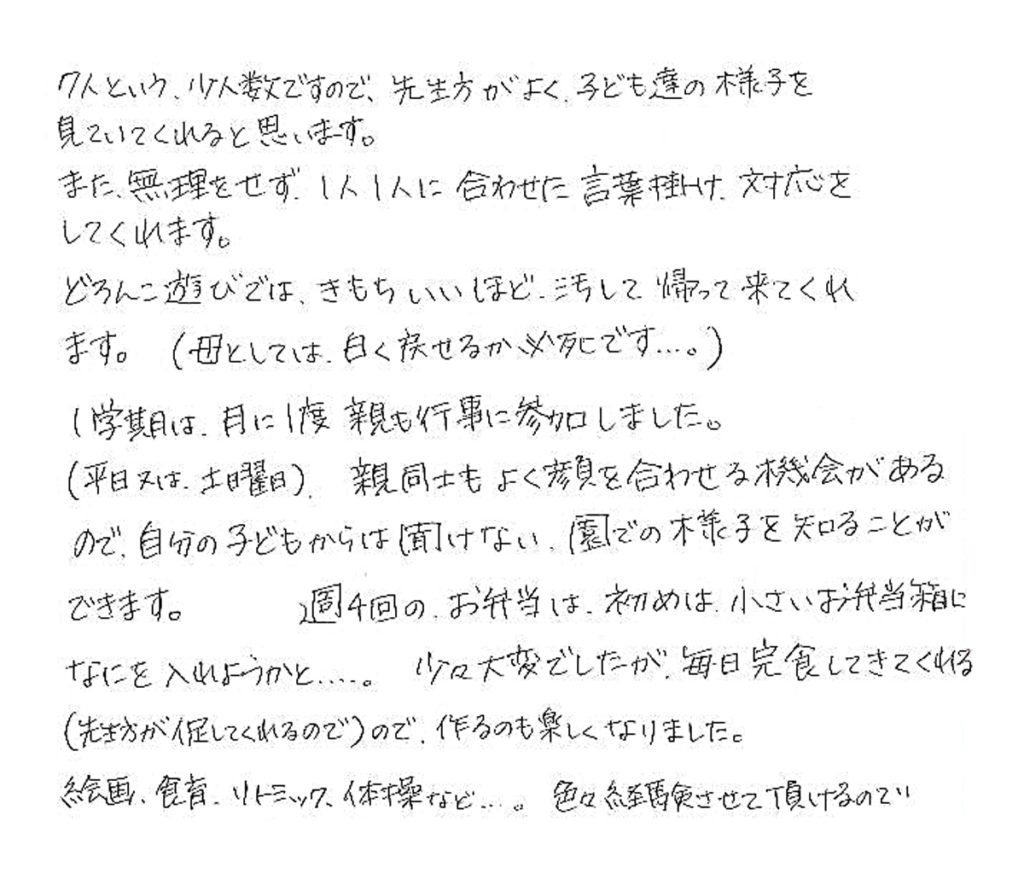 7人という、少人数ですので、先生方がよく、子ども達の様子を
見ていてくれると思います。
また、無理をせず、1人1人に合わせた言葉掛け、対応を
してくれます。
どろんこ遊びでは、きもちいいほど、汚して帰って来てくれ
ます。(母としては、白く戻せるか、必死です…。)
1学期は、月に1度親も行事に参加しました。
(平日又は、土曜日)、親同士もよく顔を合わせる機会がある
ので、自分の子どもからは聞けない、園での様子を知ることが
できます。 週4回の、お弁当は、初めは、小さいお弁当箱に
なにを入れようかと……。少々大変でしたが、毎日完食してきてくれる
(先生方が促してくれるので)ので、作るのも楽しくなりました。
絵画、食育、リトミック、体操など…。色々経験させて頂けるので